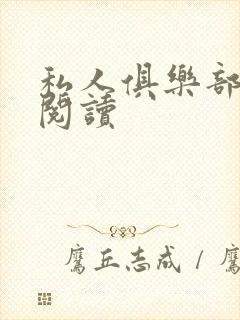 私人俱樂部
閱讀
鷹丘志成 / 鷹